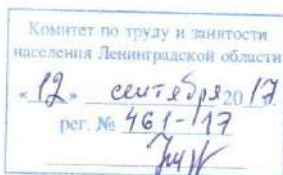 Комитет по труду и занятости
населения Ленинградской области
«12» сентября 2017
рег. № 461-17